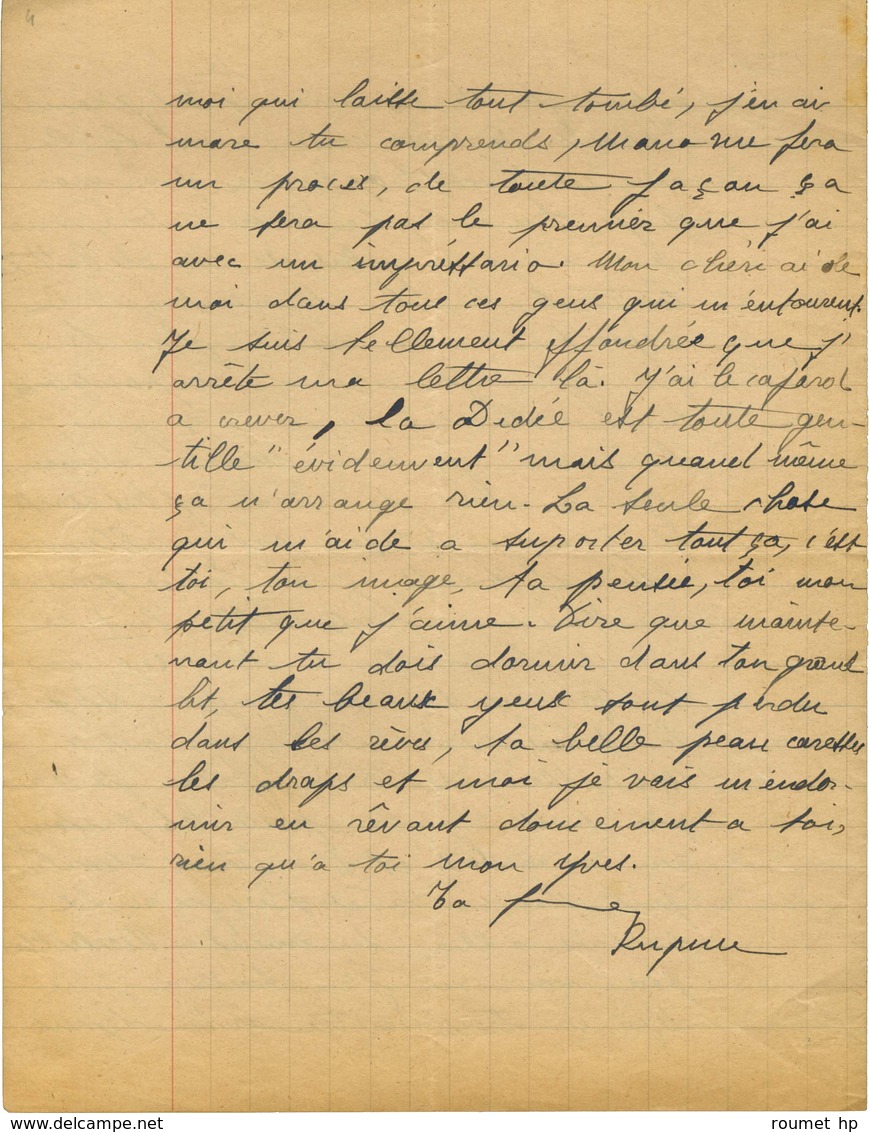 4
moi qui laisse tout tombé, j'en ai
mare tu comprends, Mano me fera
un procès, de toute façon ça
ne sera pas le premier que j'ai
avec un impréssario. Mon chéri aide
moi dans tous ces gens qui m'entourent.
Je suis tellement éffondrée que j'
arrête ma lettre là. J'ai le cafard
a crever, la Dédée est toute gen-
tille "évidemment" mais quand même
ça n'arrange rien. La seule chose
qui m'aide a suporter tout ça, c'est
toi, ton image, ta pensée, toi mon
petit que j'aime. Dire que mainte-
nant tu dois dormir dans ton grand
lit, tes beaux yeux sont perdu
dans les rêves, ta belle peau caresse
les draps et moi je vais m'endor-
mir en rêvant doucement a toi,
rien qu'a toi mon Yves.
Ta
roumet hp